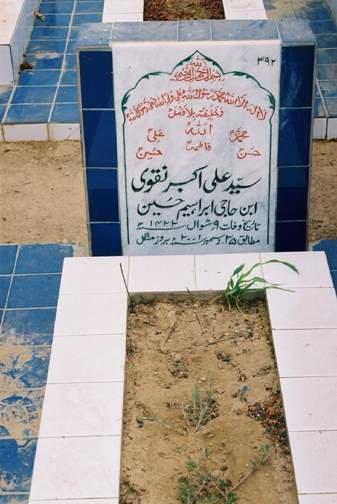 ۳۹۲
بسم الله الرحمن الرحيم
لا اله الا الله محمد رسول الله علی ولی الله وصی رسول الله
و خلیفته بلا فصل
الله
محمدؐ علیؑ
فاطمہؑ
حسنؑ حسینؑ
سیّد علی اکبر نقوی
ابن حاجی ابراہیم حسین
تاریخ وفات ۹ شوال ۱۴۲۲ ھ
مطابق ۲۵ دسمبر ۲۰۰۱ء بروز منگل